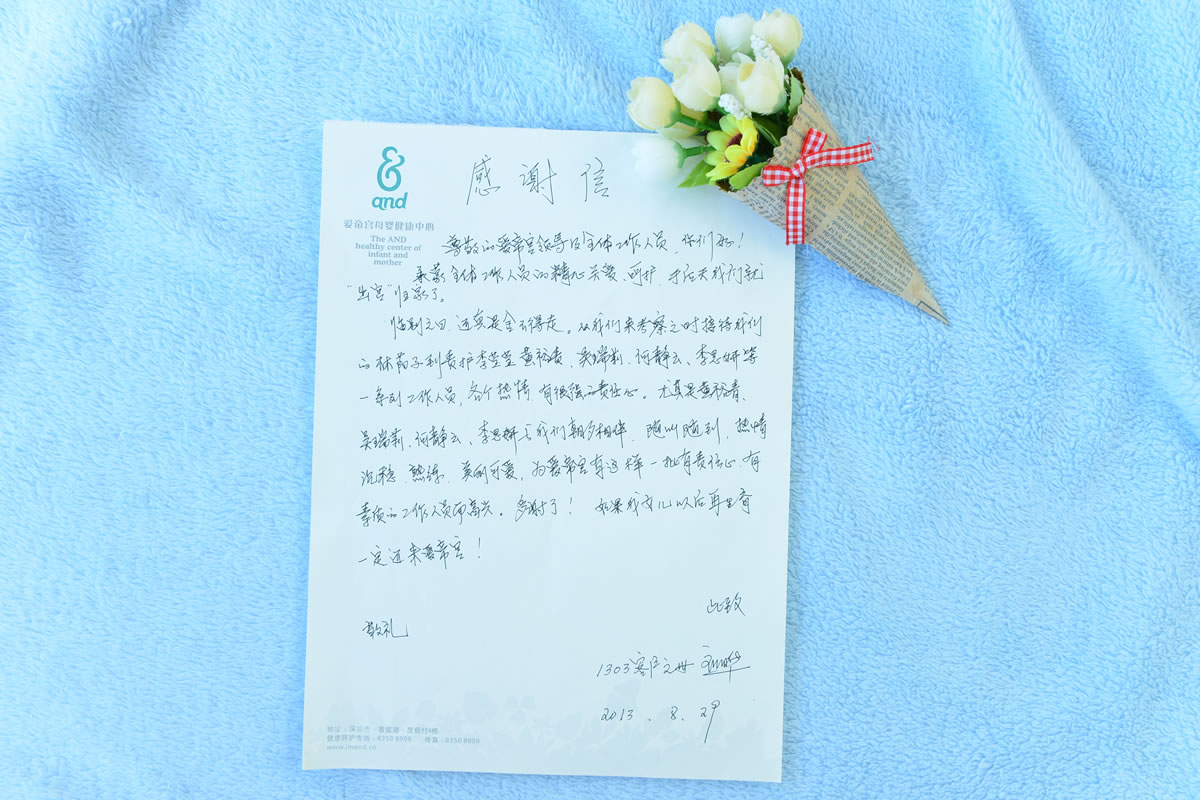 &
and
爱帝宫母婴健康中心
The AND
healthy center of
infant and
mother
感谢信
尊敬的爱帝宫领导及全体工作人员,你们好!
承蒙全体工作人员的精心关爱、呵护,才后天我们就
“出宫”归家了。
临别之日,还真是舍不得走。从我们来考察之时接待我们
的林茹子到责护李莹莹、黄裕青、吴瑞莉、何静云、李思妍等
一系列工作人员,各个热情,有很强的责任心。尤其是黄裕青、
吴瑞莉、何静云、李思妍与我们朝夕相伴,随叫随到,热情
沉稳,熟练,美丽可爱,为爱帝宫有这样一批有责任心、有
素质的工作人员而高兴。多谢了!如果我女儿以后再生育
一定还来爱帝宫!
此致
敬礼
1303客户之母
2013.8.29
地址·深圳市·香蜜湖·度假村4栋
健康呵护专线·8350 8909 传真·8350 8909
www.imand.cn